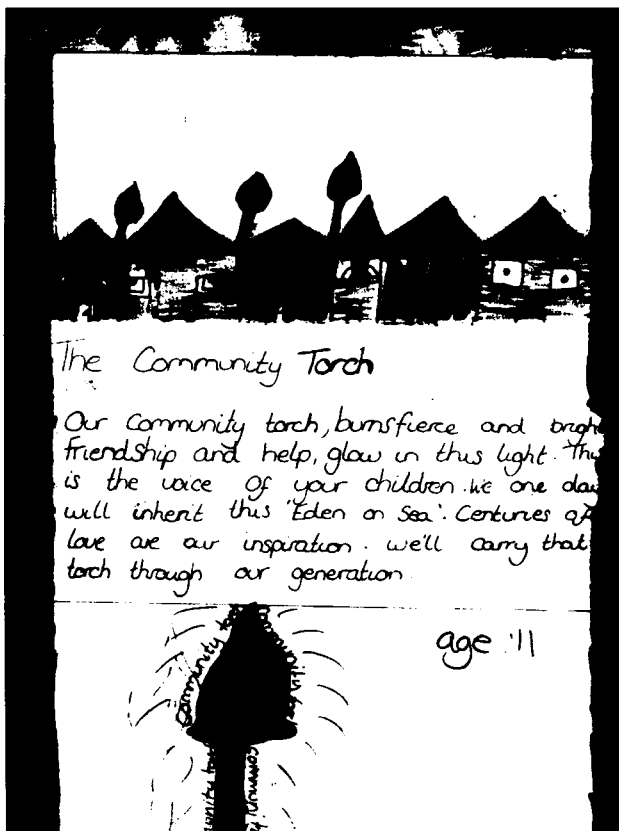 The Community Torch
Our Community torch, burns fierce and bright
Friendship and help, glow in this light. This
is the voice of your children. We one day
will inherit this 'Eden on Sea'. Centuries of
love are our inspiration. we'll carry that
torch through our generation
age 11
Community torch
Community